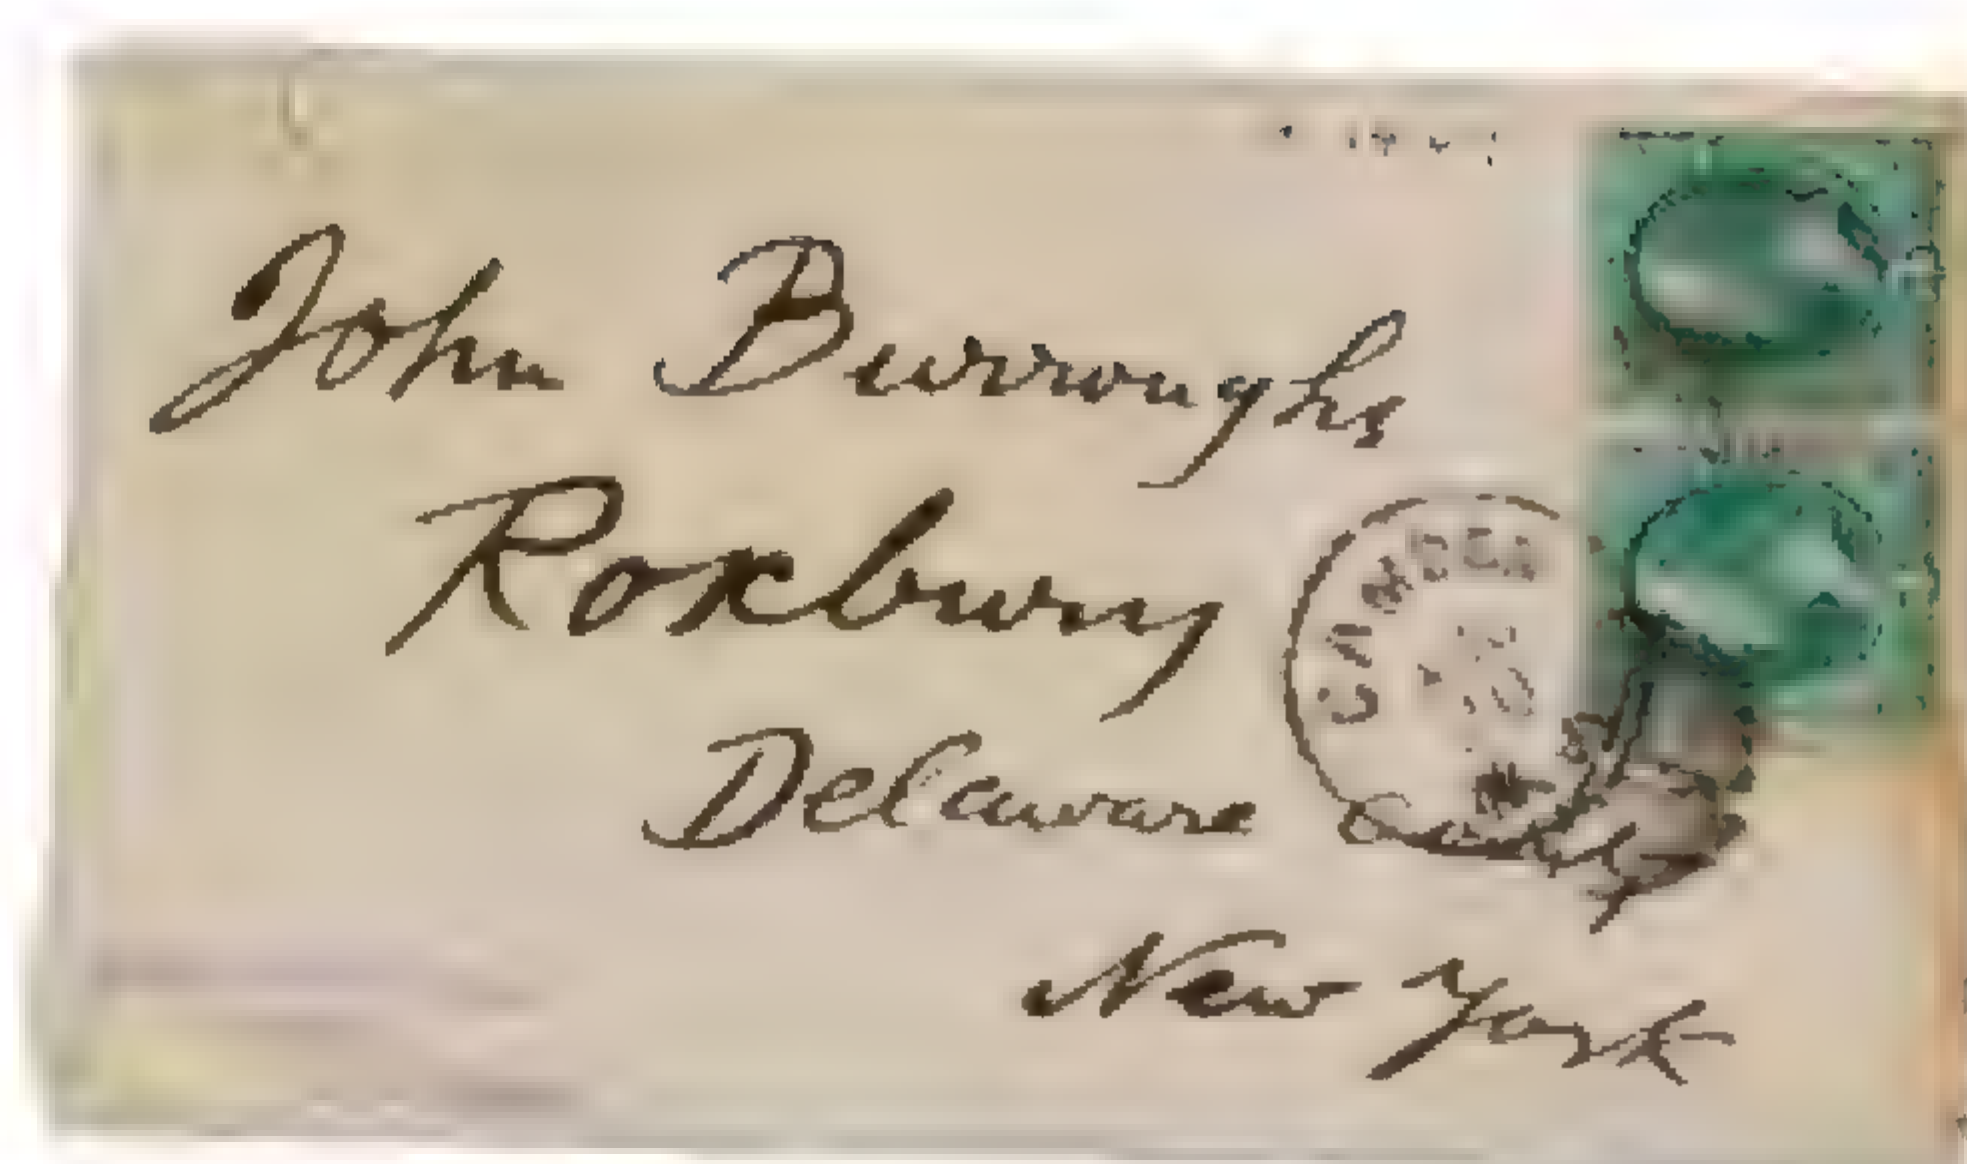 John Burroughs
Roxbury
Delaware County
New York
CAMDEN